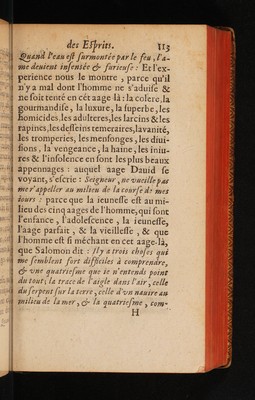 des Esprits. 113
Quand l'eau est surmontée par le feu, l'a-
me deuient insensée & furieuse: Et l'ex-
perience nous le montre, parce qu'il
n'y a mal dont l'homme ne s'aduise &
ne soit tenté en cét aage là: la colere, la
gourmandise, la luxure, la superbe, les
homicides, les adulteres, les larcins & les
rapines, les desseins temeraires, la vanité,
les tromperies, les mensonges, les diui-
sions, la vengeance, la haine, les iniu-
res & l'insolence en sont les plus beaux
appennages: auquel aage Dauid se
voyant, s'escrie: Seigneur, ne vueille pas
me r'appeller au milieu de la course de mes
iours: parce que la ieunesse est au mi-
lieu des cinq aages de l'homme, qui sont
l'enfance, l'adolescence, la ieunesse,
l'aage parfait, & la vieillesse, & que
l'homme est si méchant en cet aage-là,
que Salomon dit: Il y a trois choses qui
me semblent fort difficiles à comprendre,
& vne quatriesme que ie n'entends point
du tout; la trace de l'aigle dans l'air, celle
du serpent sur la terre, celle d'vn nauire au
milieu de la mer, & la quatriesme, com-
H